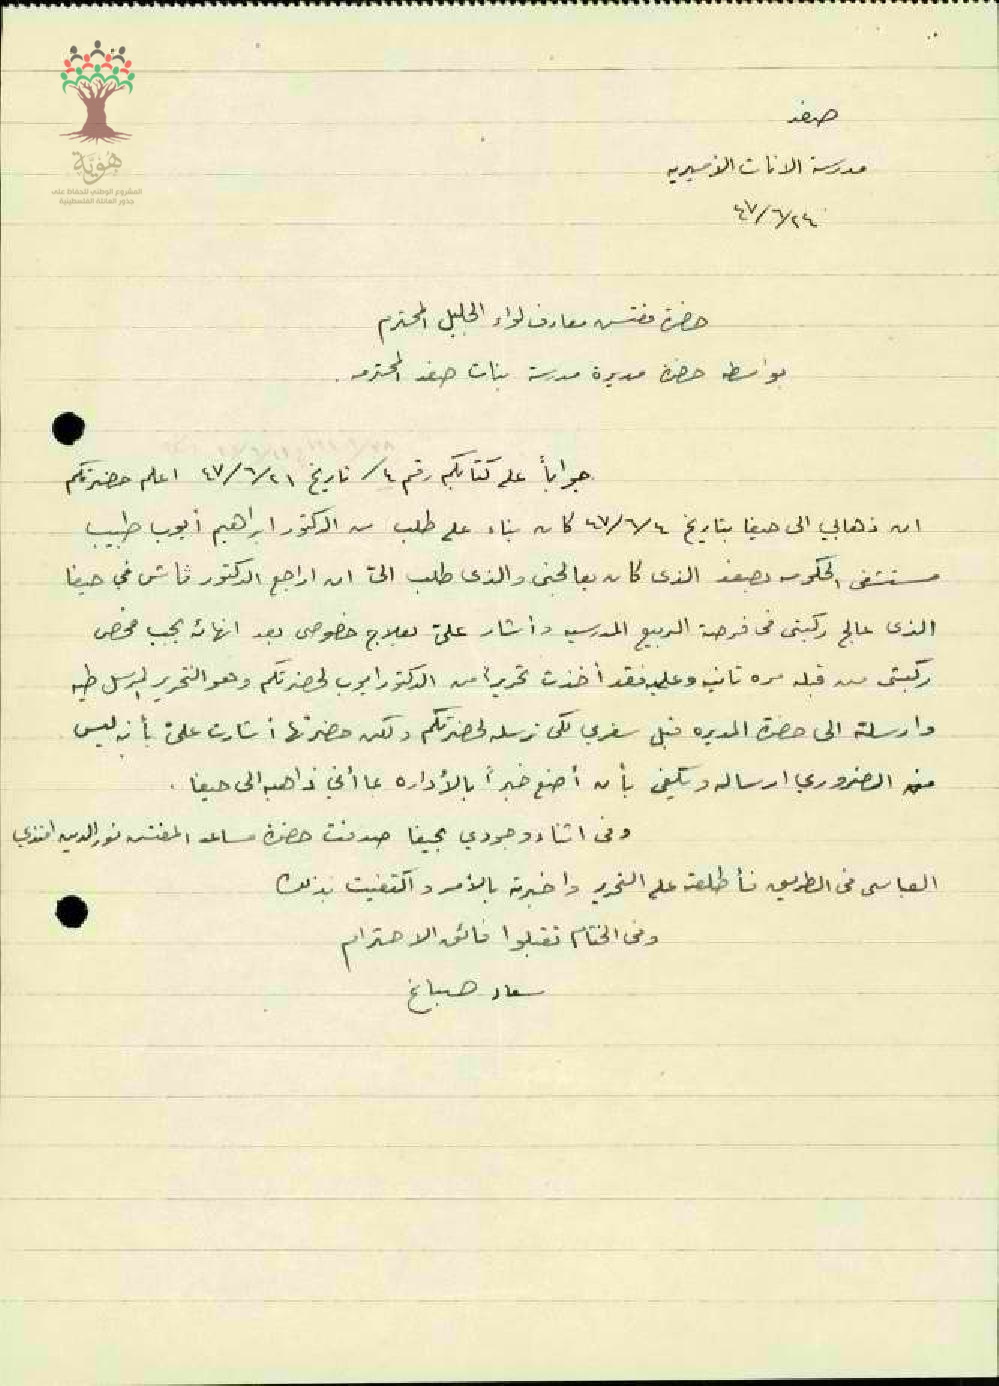 هُوِيَّة
المشروع الوطني للحفاظ على
جذور العائلة الفلسطينية
صفد
مدرسة الاناث الاميريه
٤٧/٦/٢٤
حضرة مفتش معارف لواء الجليل المحترم
بواسطه حضرة مديرة مدرسة بنات صفد المحترمه .
جواباً على كتابكم رقم ٤/ تاريخ ٤٧/٦/٢١ اعلم حضرتكم
ان ذهابي الى حيفا بتاريخ ٤٧/٦/٤ كان بناء على طلب من الدكتور ابراهيم أيوب طبيب
مستشفى الحكومه بصفد الذى كان يعالجنى والذى طلب اليّ ان اراجع الدكتور في حيفا
الذى عالج ركبتى فى فرصة الربيع المدرسيه وأشار عليّ بعلاج خصوصى بعد انهائه يجب فحص
ركبتى من قبله مره ثانيه وعليه فقد أخذت تحريراً من الدكتور ايوب لحضرتكم وهو التحرير المرسل طيه
وارسلته الى حضرة المديره قبل سفري لكى ترسله لحضرتكم ولكن حضرتها أشارت عليّ بأنه ليس
من الضروري ارساله ويكفى بأن أضع خبراً بالأداره عما أني ذاهبه الى حيفا .
وفى اثناء وجودي بحيفا صدفت حضرة مساعد المفتش نورالدين افندي
العباسى فى الطريق فأطلعته على التحرير واخبرته بالأمر واكتفيت بذلك
وفى الختام تقبلوا فائق الاحترام
سعاد صباغ